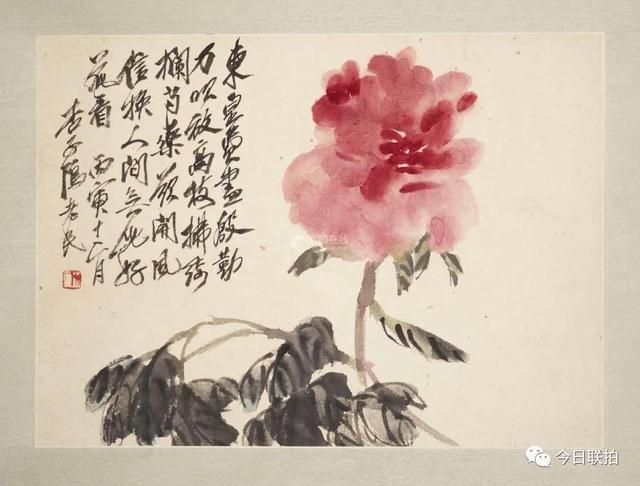 東皇費盡殷勤
力吹放高枝拂綺
欄芍藥開風
信換人間無此好
花看 丙寅十二月
杏子隝老民
今日联拍